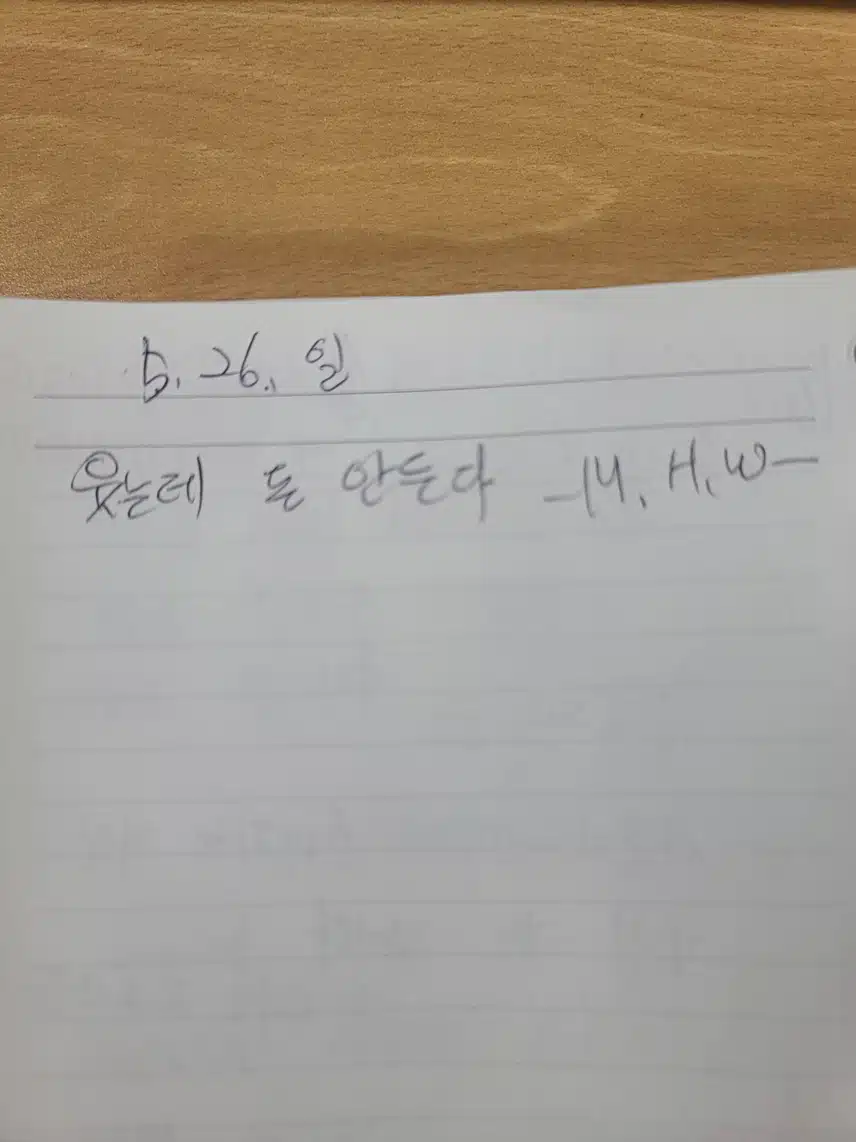 5. 26. 일
웃는데 돈 안든다 -M. H. W-